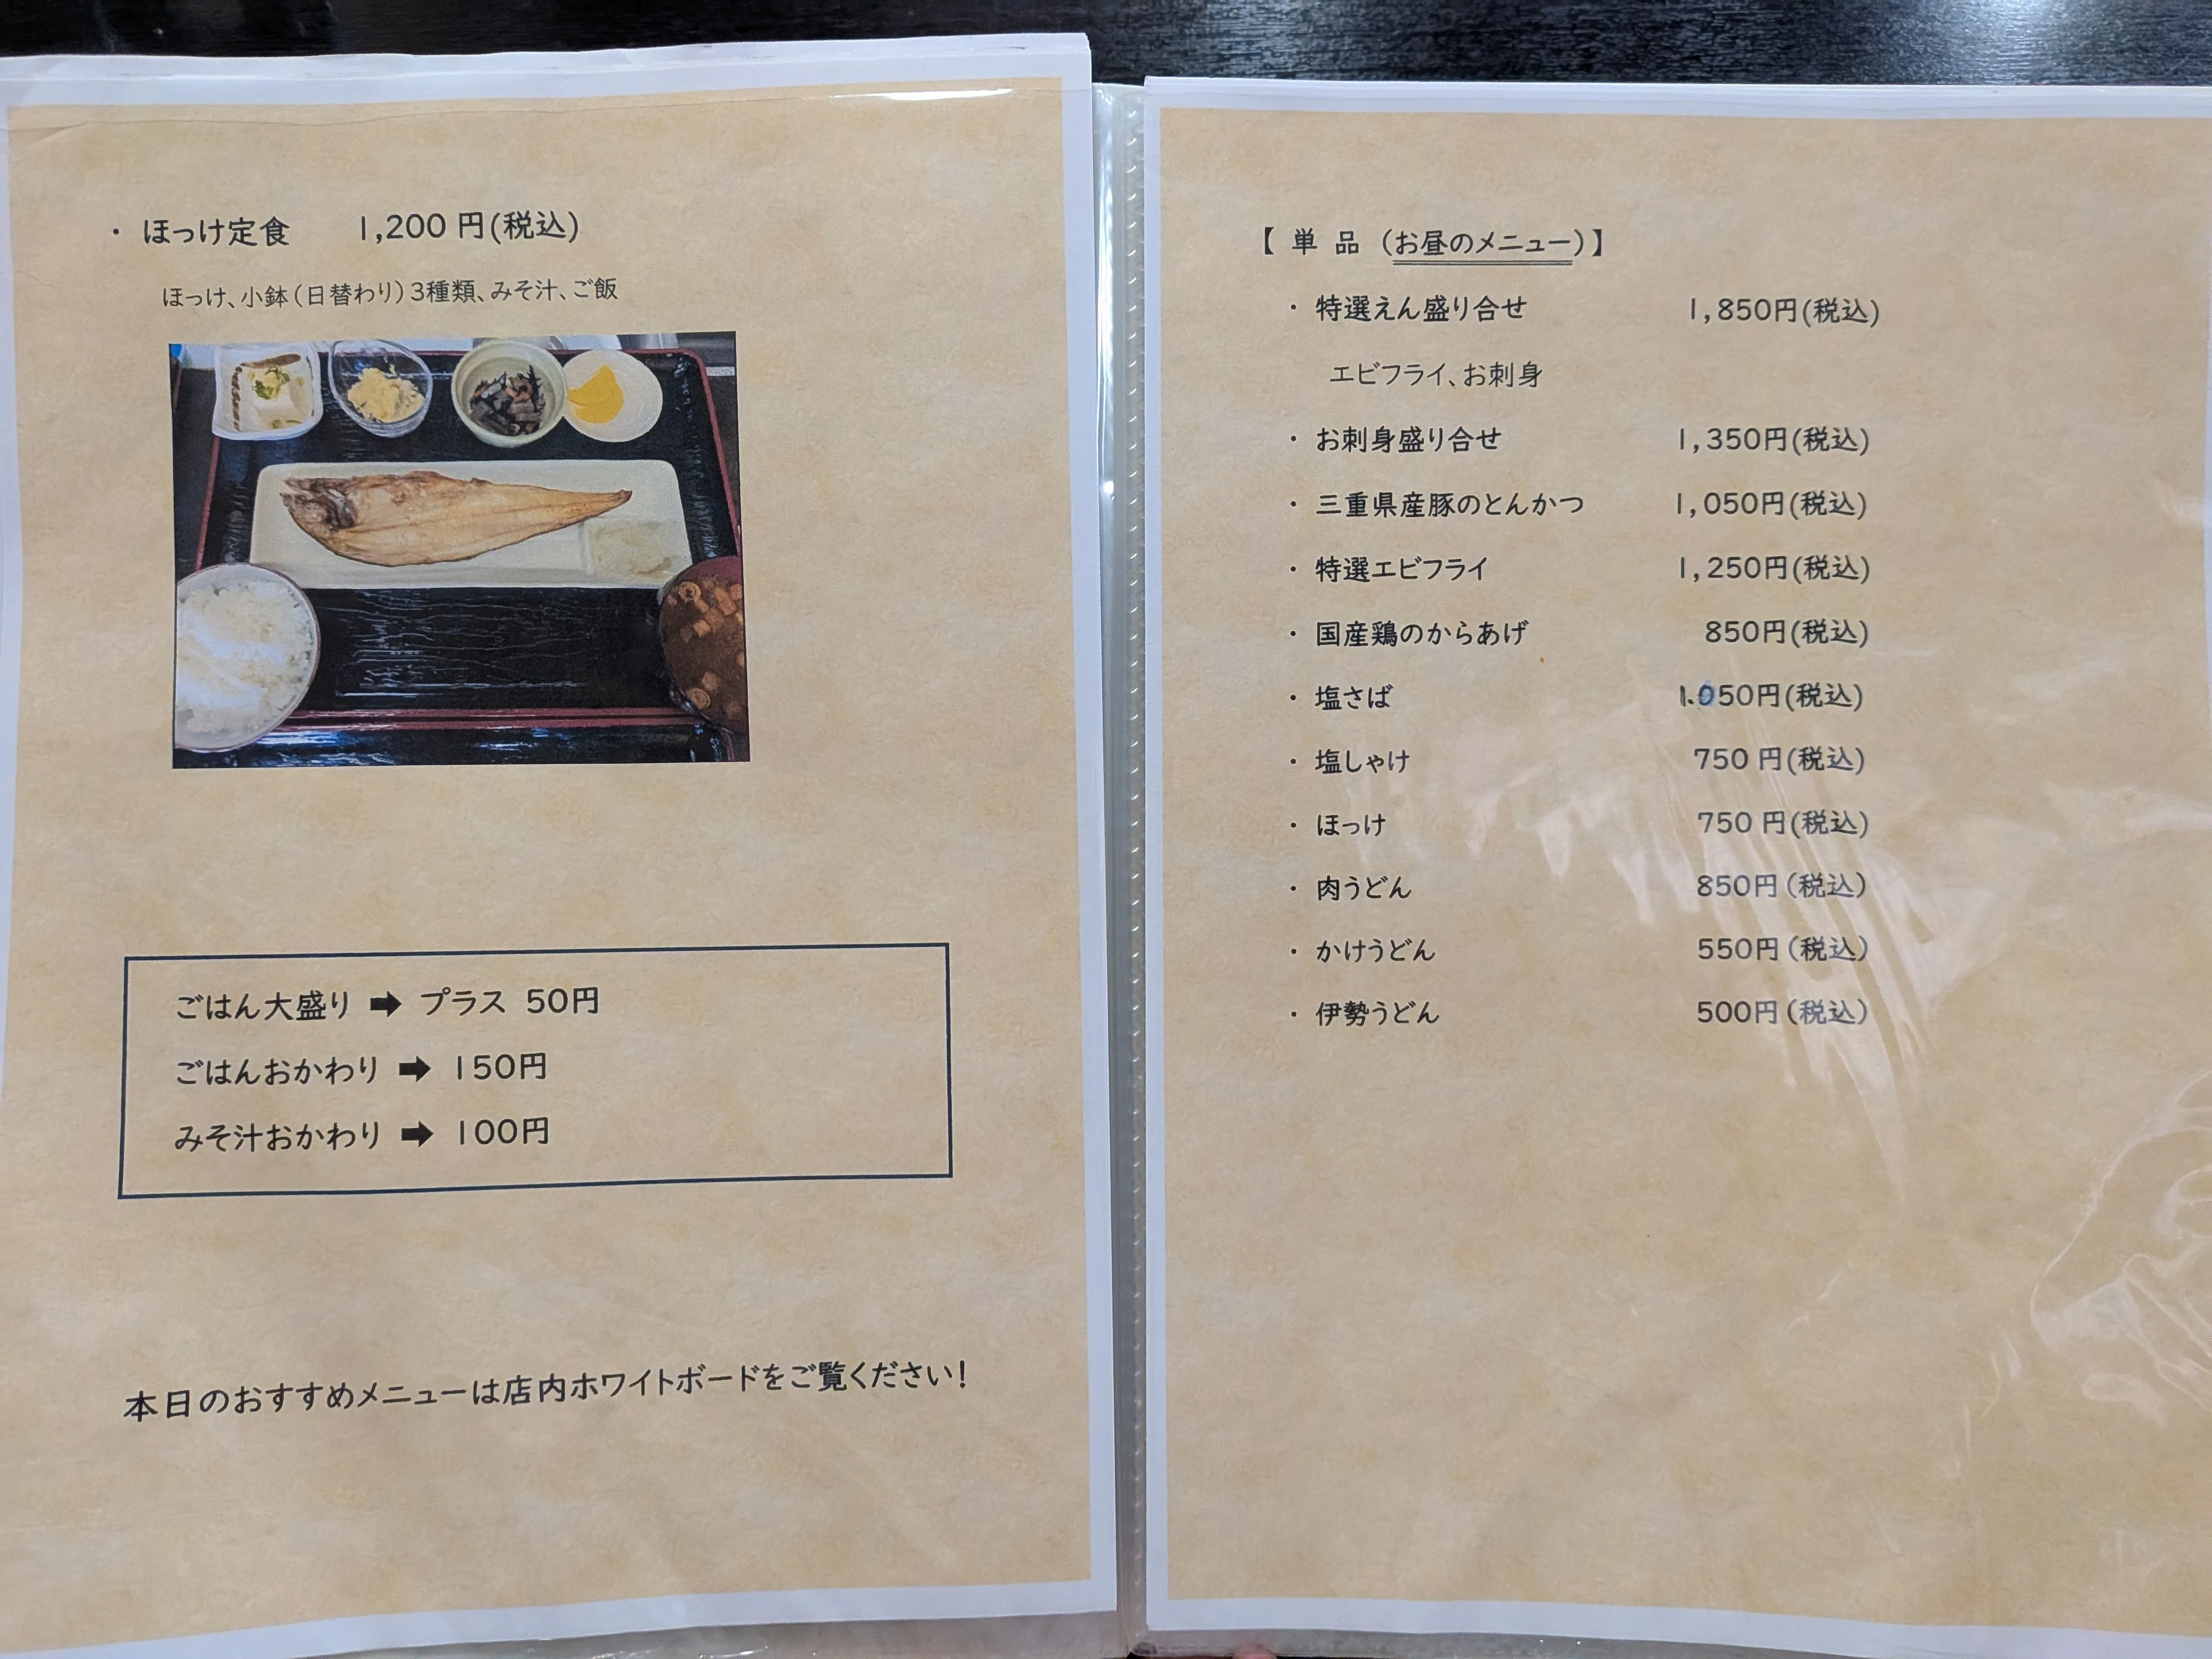 ・ ほっけ定食 1,200 円(税込)
ほっけ、小鉢(日替わり)3種類、みそ汁、ご飯
ごはん大盛り ➡ プラス 50円
ごはんおかわり ➡ 150円
みそ汁おかわり ➡ 100円
本日のおすすめメニューは店内ホワイトボードをご覧ください!
【 単 品 (お昼のメニュー)】
・ 特選えん盛り合せ 1,850円(税込)
エビフライ、お刺身
・ お刺身盛り合せ 1,350円(税込)
・ 三重県産豚のとんかつ 1,050円(税込)
・ 特選エビフライ 1,250円(税込)
・ 国産鶏のからあげ 850円(税込)
・ 塩さば 1.050円(税込)
・ 塩しゃけ 750 円(税込)
・ ほっけ 750 円(税込)
・ 肉うどん 850円(税込)
・ かけうどん 550円(税込)
・ 伊勢うどん 500円(税込)